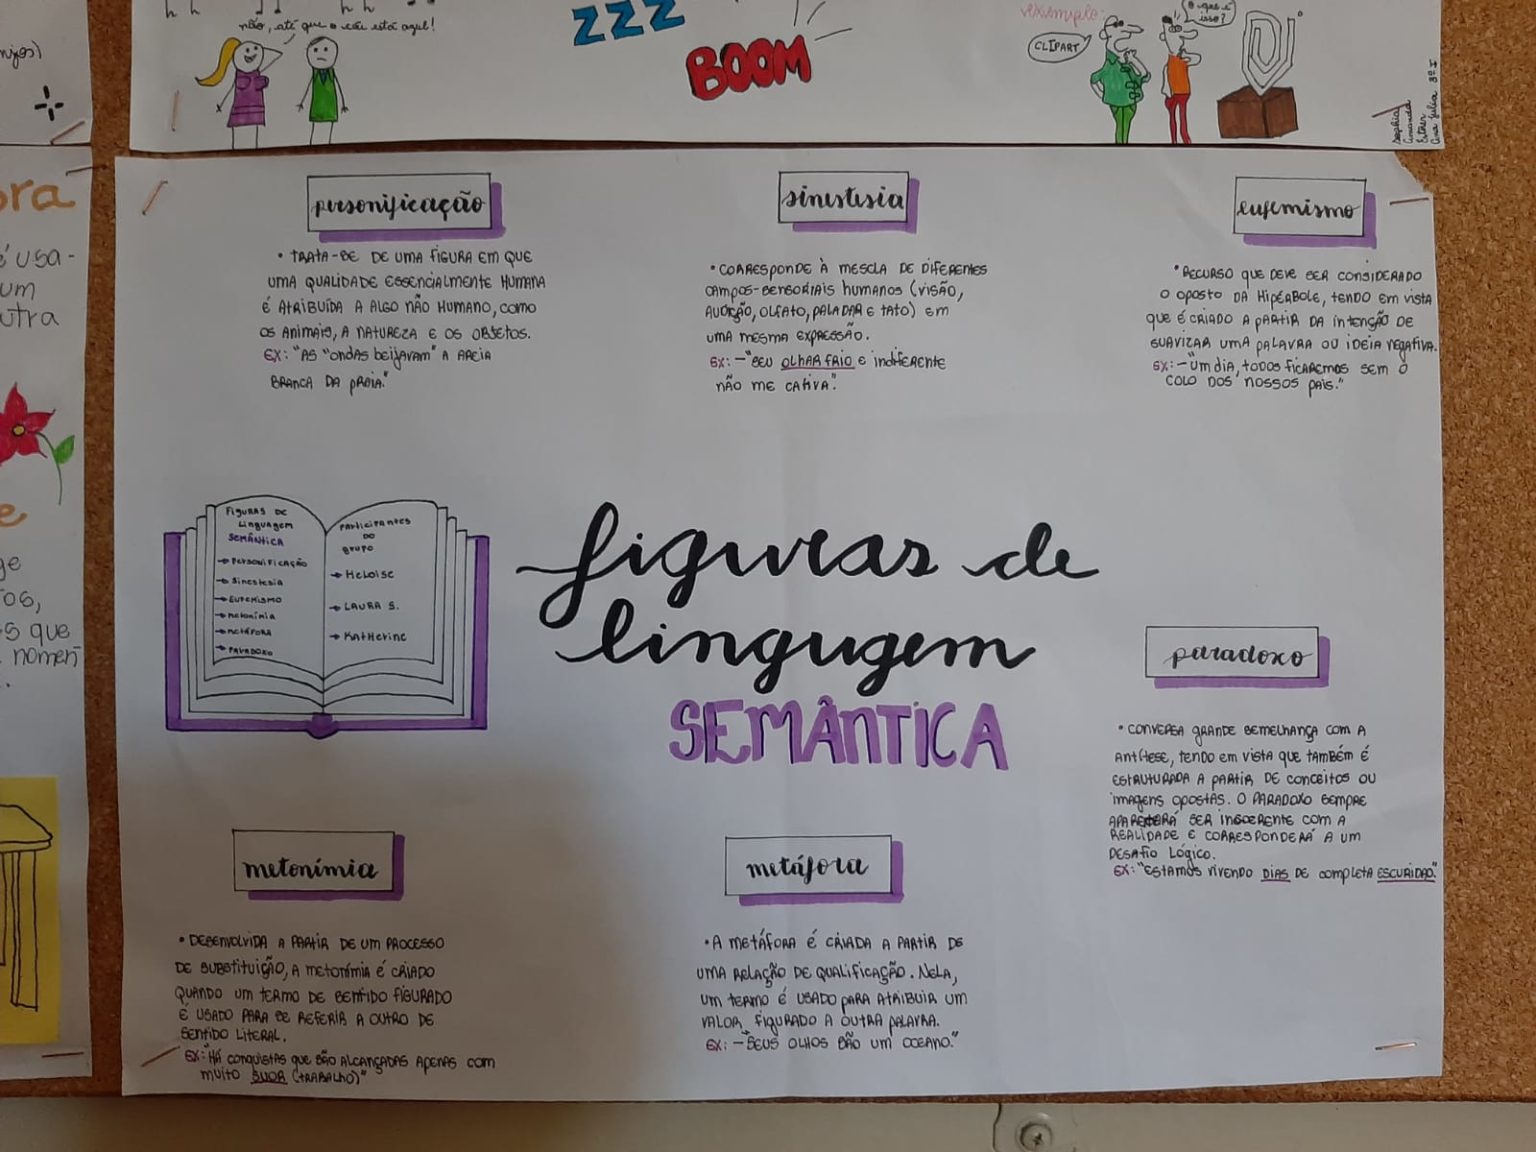 não, até que o céu está azul!
ZZZ
BOOM
exemplo:
CLIPART
O que é
isso?
Sophia
Amanda
Esther
Ana Julia 3º I
njos)
ora
é usa-
um
utra
e
ge
tos,
s que
nomen
personificação
• TRATA-SE DE UMA FIGURA EM QUE
UMA QUALIDADE ESSENCIALMENTE HUMANA
É ATRIBUÍDA A ALGO NÃO HUMANO, COMO
OS ANIMAIS, A NATUREZA E OS OBJETOS.
EX: "AS "ONDAS BEIJAVAM" A AREIA
BRANCA DA PRAIA."
sinestesia
• CORRESPONDE À MESCLA DE DIFERENTES
CAMPOS-SENSORIAIS HUMANOS (VISÃO,
AUDIÇÃO, OLFATO, PALADAR E TATO) EM
UMA MESMA EXPRESSÃO.
EX: - "SEU OLHAR FRIO E INDIFERENTE
NÃO ME CATIVA".
eufemismo
• RECURSO QUE DEVE SER CONSIDERADO
O OPOSTO DA HIPÉRBOLE, TENDO EM VISTA
QUE É CRIADO A PARTIR DA INTENÇÃO DE
SUAVIZAR UMA PALAVRA OU IDEIA NEGATIVA.
EX: - "UM DIA, TODOS FICAREMOS SEM O
COLO DOS NOSSOS PAIS."
FIGURAS DE
LINGUAGEM
SEMÂNTICA
→ PERSONIFICAÇÃO
→ SINESTESIA
→ EUFEMISMO
→ METONÍMIA
→ METÁFORA
→ PARADOXO
PARTICIPANTES
DO
GRUPO
→ HELOISE
→ LAURA S.
→ KATHERINE
figuras de
lingugem
SEMÂNTICA
paradoxo
• CONVERSA GRANDE SEMELHANÇA COM A
ANTÍTESE, TENDO EM VISTA QUE TAMBÉM É
ESTRUTURADA A PARTIR DE CONCEITOS OU
IMAGENS OPOSTAS. O PARADOXO SEMPRE
APARENTARÁ SER INCOERENTE COM A
REALIDADE E CORRESPONDERÁ A UM
DESAFIO LÓGICO.
EX: "ESTAMOS VIVENDO DIAS DE COMPLETA ESCURIDÃO."
metonímia
• DESENVOLVIDA A PARTIR DE UM PROCESSO
DE SUBSTITUIÇÃO, A METONÍMIA É CRIADO
QUANDO UM TERMO DE SENTIDO FIGURADO
É USADO PARA SE REFERIR A OUTRO DE
SENTIDO LITERAL.
EX: "HÁ CONQUISTAS QUE SÃO ALCANÇADAS APENAS COM
MUITO SUOR (TRABALHO)"
metáfora
• A METÁFORA É CRIADA A PARTIR DE
UMA RELAÇÃO DE QUALIFICAÇÃO. NELA,
UM TERMO É USADO PARA ATRIBUIR UM
VALOR FIGURADO A OUTRA PALAVRA.
EX: - "SEUS OLHOS SÃO UM OCEANO."